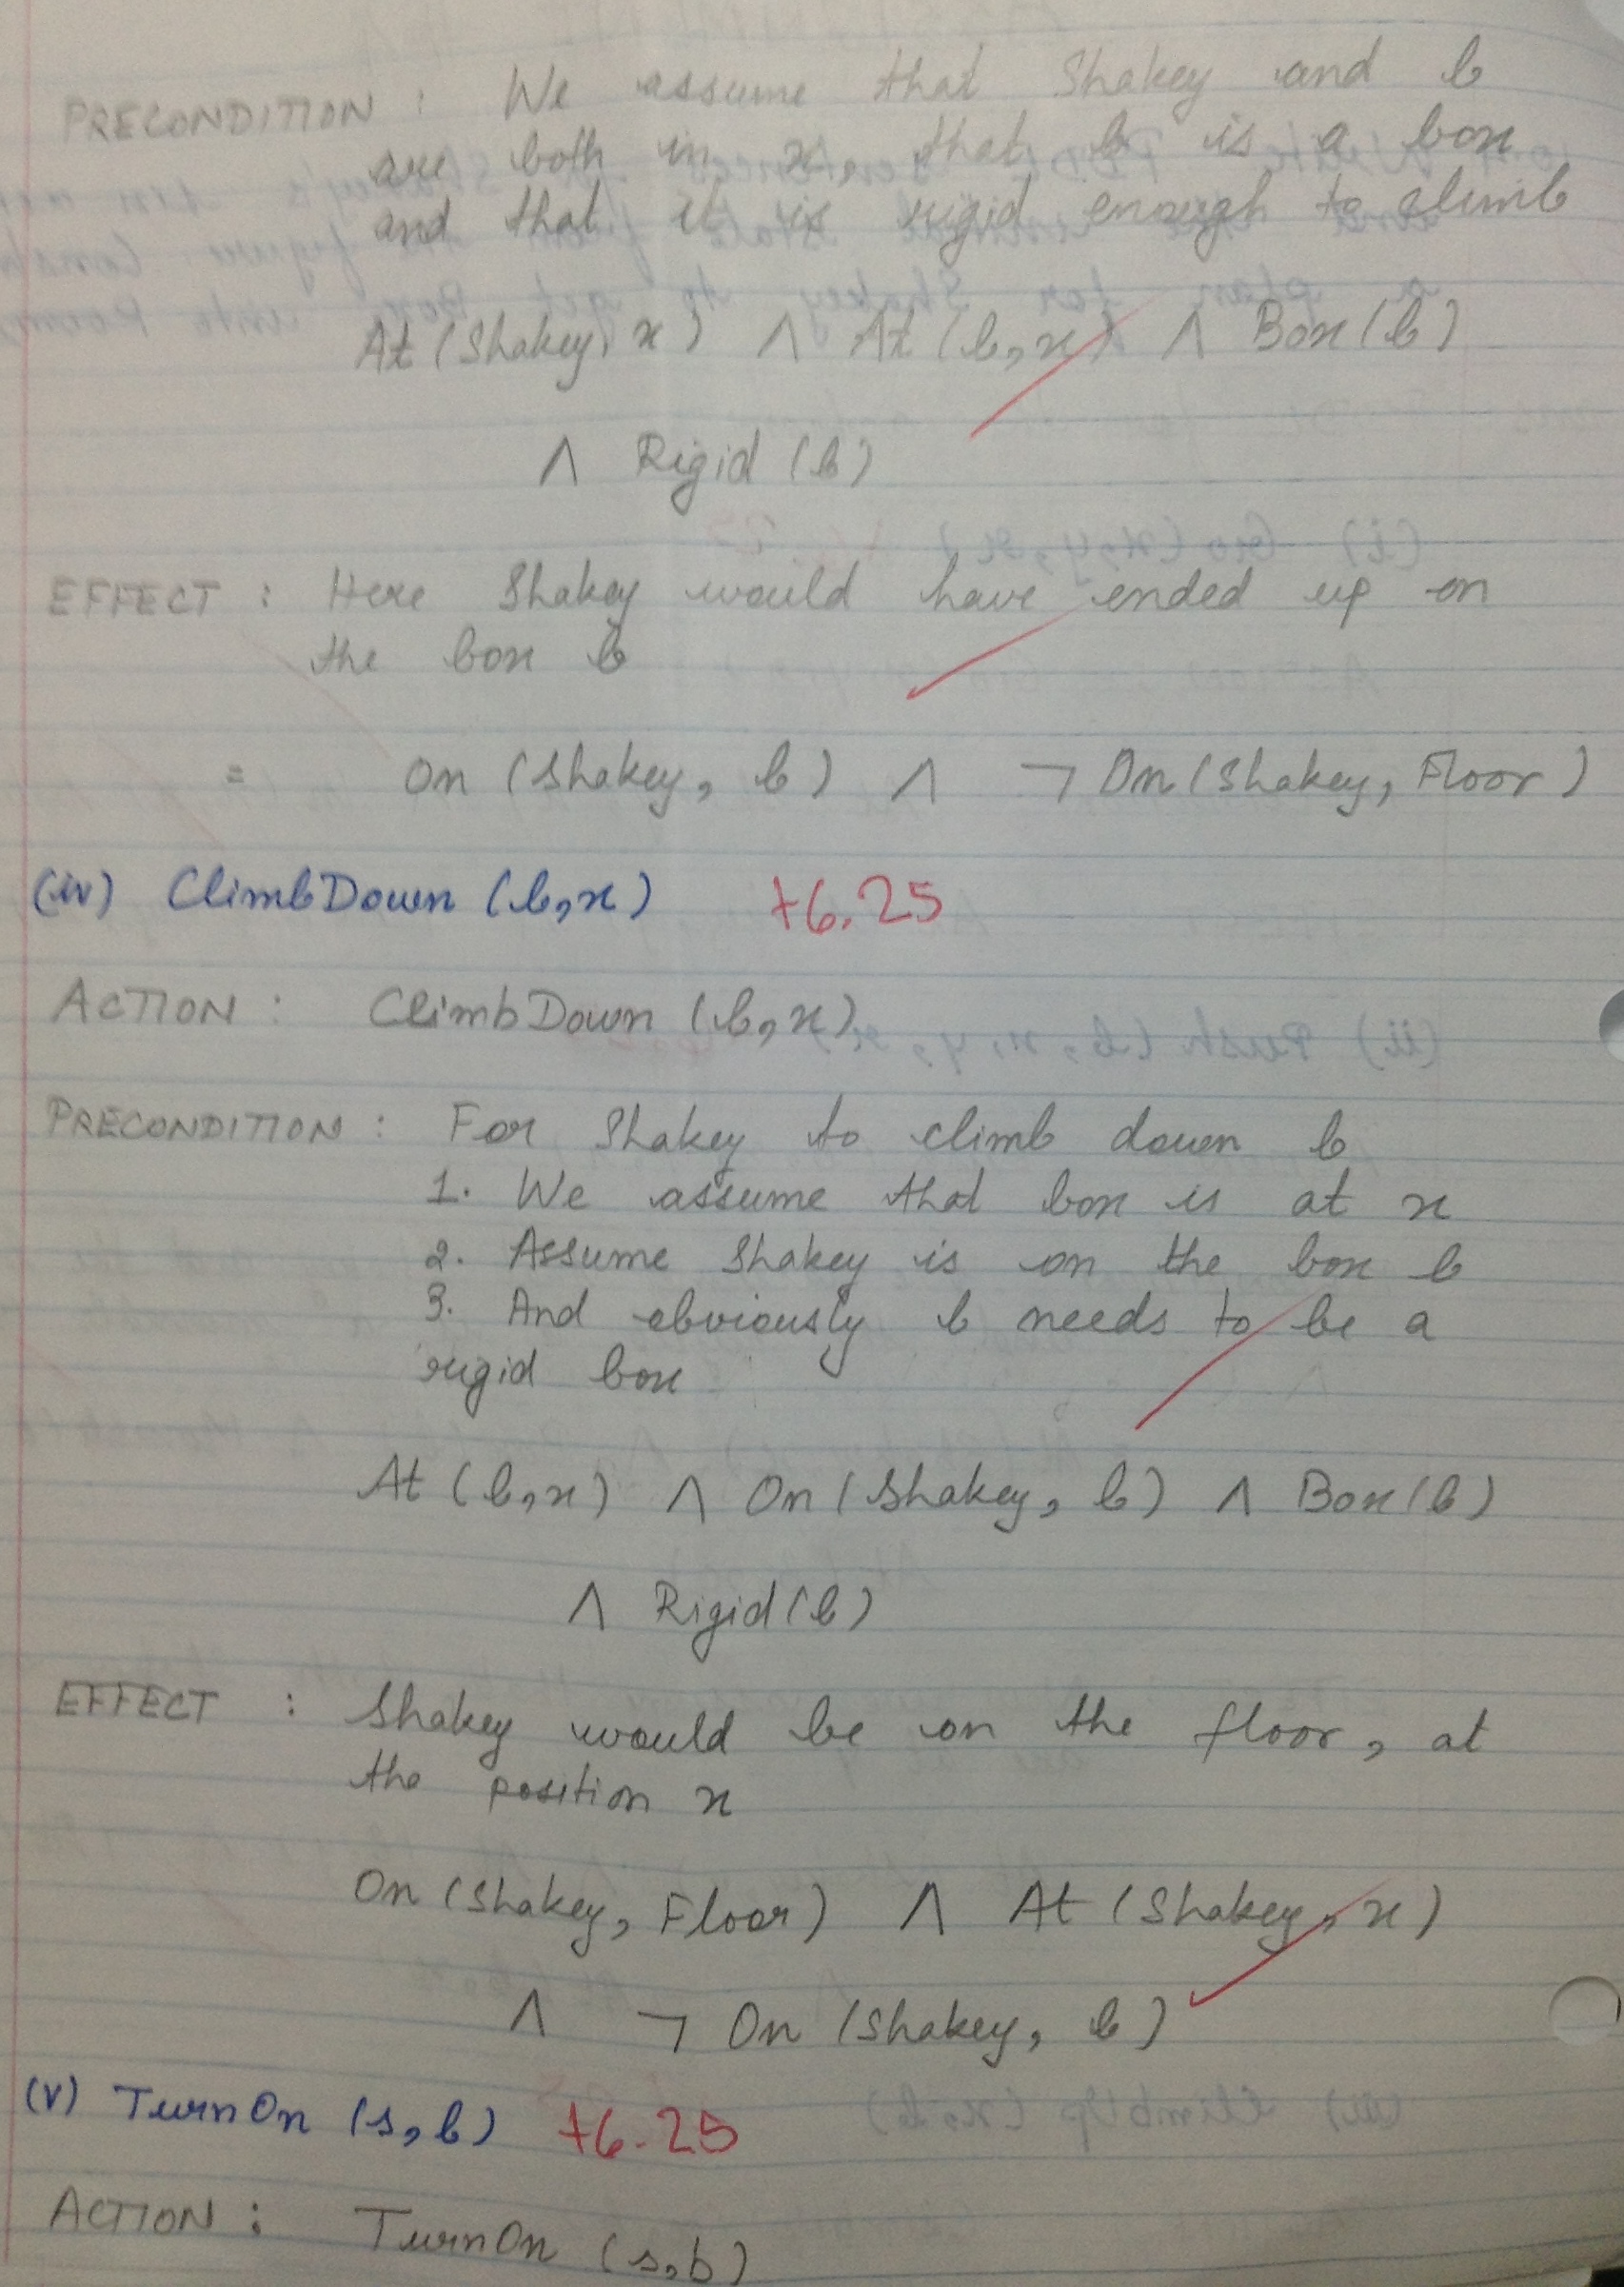 PRECONDITION : We assume that Shakey and b
are both in x, that b is a box
and that it is rigid enough to climb
At (Shakey, x) ∧ At (b,x) ∧ Box (b)
∧ Rigid (b)
EFFECT : Here Shakey would have ended up on
the box b
= On (Shakey, b) ∧ ¬ On (Shakey, Floor)
(iv) ClimbDown (b,x) +6.25
ACTION : ClimbDown (b,x)
PRECONDITION : For Shakey to climb down b
1. We assume that box is at x
2. Assume Shakey is on the box b
3. And obviously b needs to be a
rigid box
At (b,x) ∧ On (Shakey, b) ∧ Box (b)
∧ Rigid (b)
EFFECT : Shakey would be on the floor, at
the position x
On (Shakey, Floor) ∧ At (Shakey, x)
∧ ¬ On (Shakey, b)
(v) TurnOn (s,b) +6.25
ACTION : TurnOn (s,b)